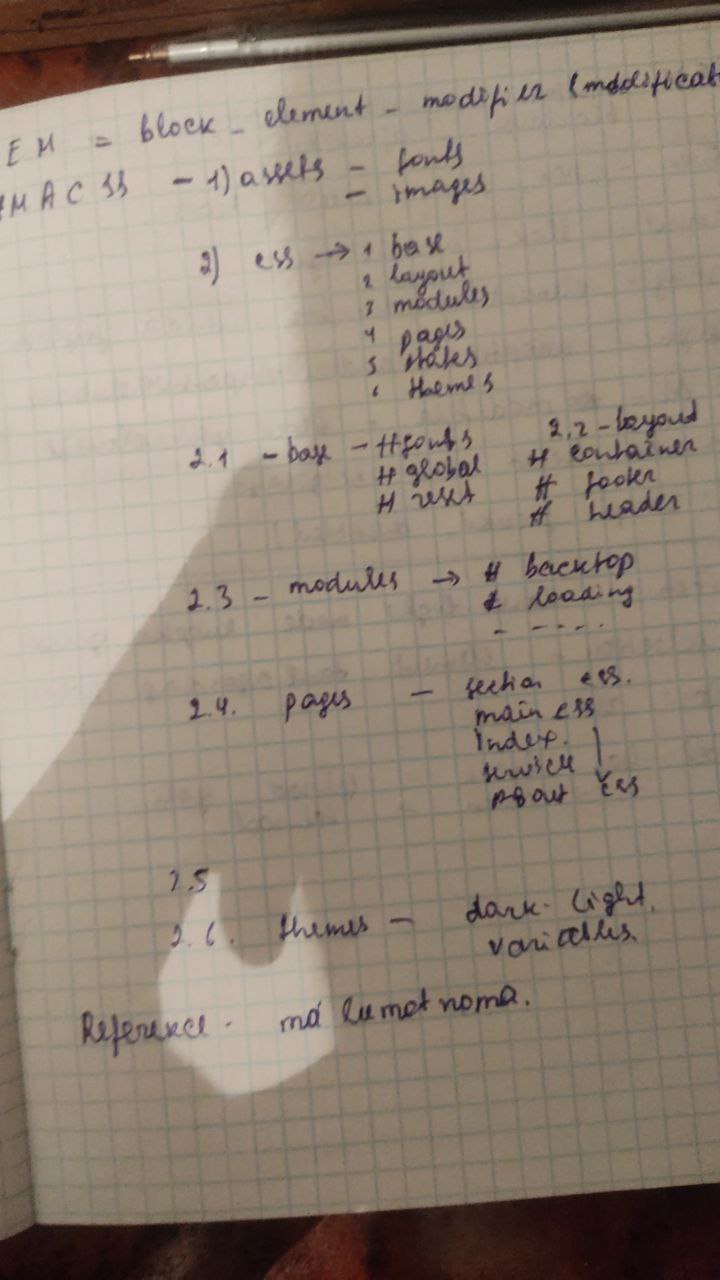 EM = block - element - modifier (modificat
MACSS - 1) assets - fonts
- images
2) css → 1 base
2 layout
3 modules
4 pages
5 states
6 themes
2.1 - base - # fonts
# global
# reset
2.2 - layout
# container
# footer
# header
2.3 - modules → # backtop
# loading
- - - - .
2.4. pages - section css.
main css
index.
service
About css
2.5
2.6. themes - dark - light.
variables.
Reference - ma'lumotnoma.